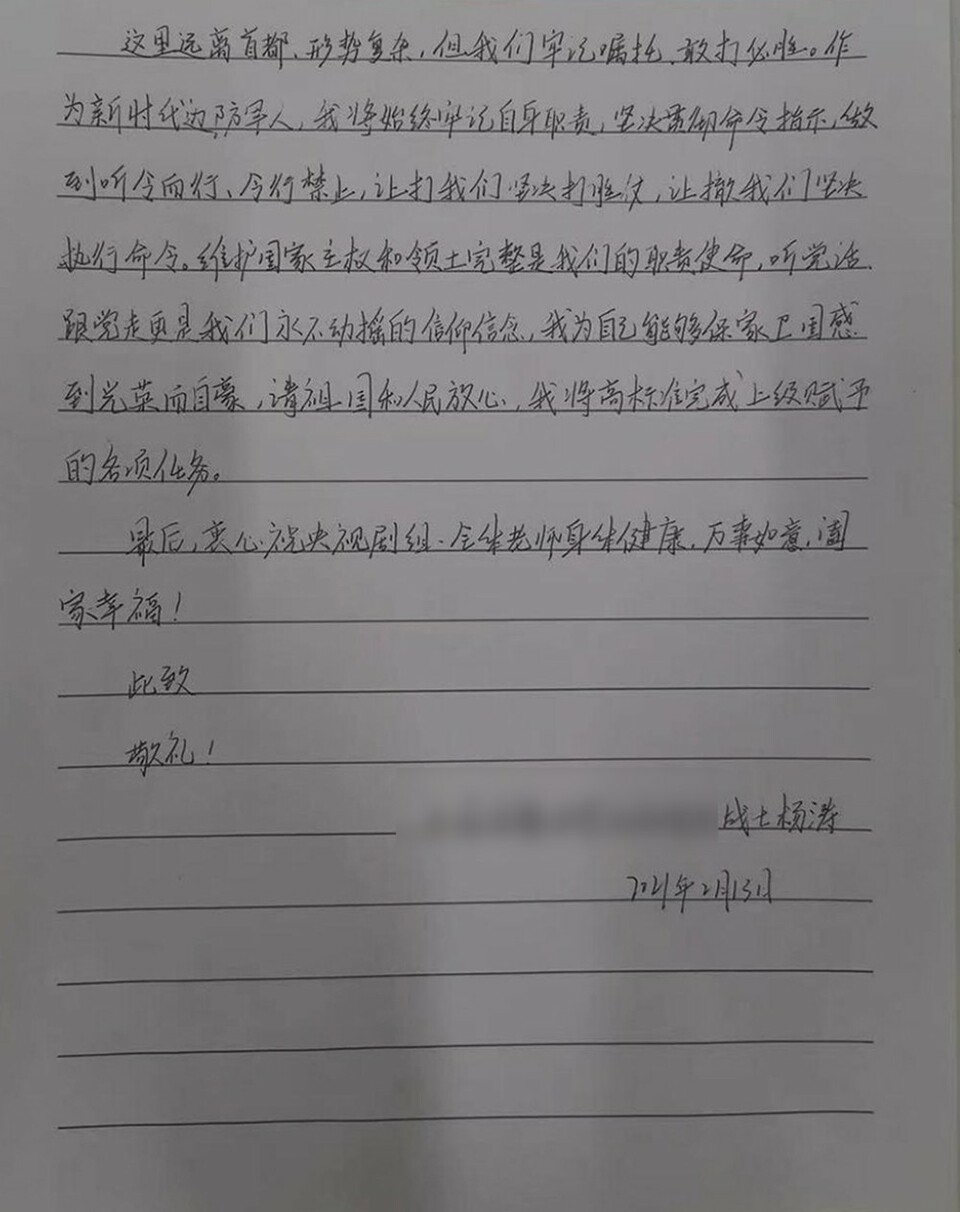 这里远离首都、形势复杂，但我们牢记嘱托、敢打必胜。作
为新时代边防军人，我将始终牢记自身职责，坚决贯彻命令指示，做
到听令而行、令行禁止，让打我们坚决打胜仗，让撤我们坚决
执行命令。维护国家主权和领土完整是我们的职责使命，听党话、
跟党走更是我们永不动摇的信仰信念，我为自己能够保家卫国感
到光荣而自豪，请祖国和人民放心，我将高标准完成上级赋予
的各项任务。
最后，衷心祝央视剧组全体老师身体健康，万事如意，阖
家幸福！
此致
敬礼！
战士杨涛
2021年2月13日